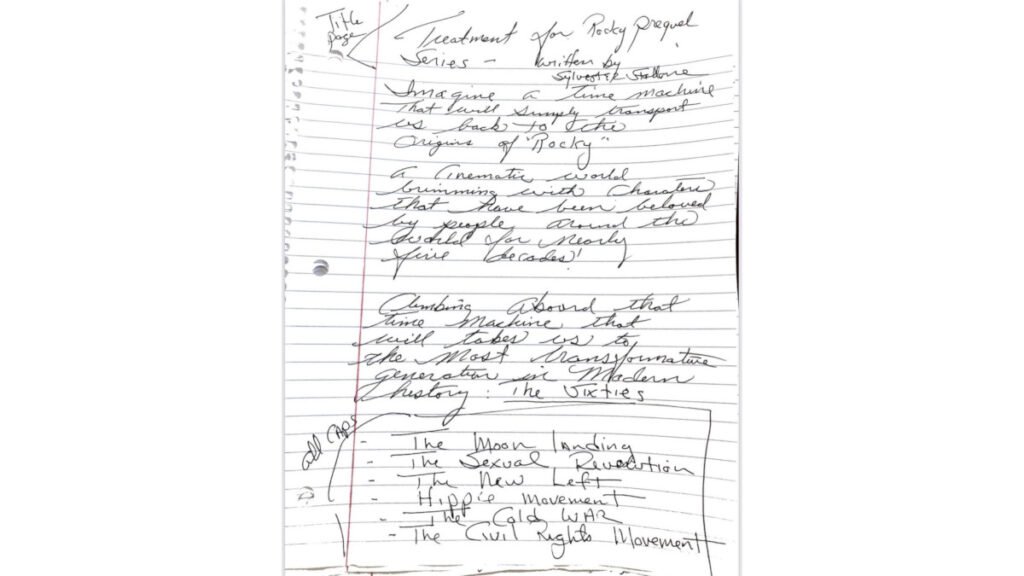 Title
page
Treatment for Rocky prequel
Series - written by
Sylvester Stallone
Imagine a time machine
that will simply transport
us back to the
Origins of "Rocky"
a Cinematic world
brimming with Charaters
that have been beloved
by people around the
World for Nearly
five decades!
Climbing Aboard that
time Machine that
will takes us to
the Most transformative
generation in Modern
history: The Sixties
all CAPS
- The Moon landing
- The Sexual Revolution
- The New Left
- Hippie Movement
- The Cold WAR
- The Civil Rights Movement